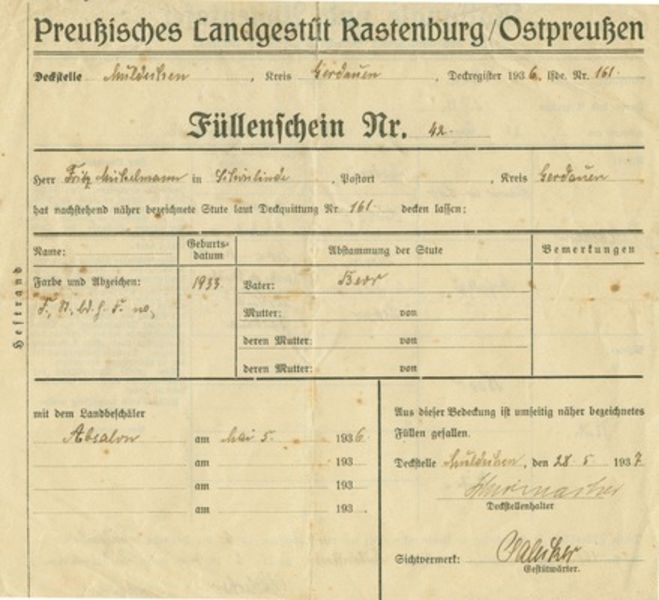 Preußisches Landgestüt Rastenburg/Ostpreußen
Deckstelle Muldschen, Kreis Gerdauen, Deckregister 1936. lfde. Nr. 161.
Füllenschein Nr. 42.
Herr Fritz in , Postort , Kreis Gerdauen
hat nachstehend näher bezeichnete Stute laut Deckquittung Nr 161. decken lassen:
Name: Geburts- datum Abstammung der Stute Bemerkungen
Farbe und Abzeichen: 1933 Vater: 
Mutter: von
deren Mutter: von
deren Mutter: von
Heftrand
mit dem Landbeschäler
Absalon am Mai 5. 1936.
am 193
am 193
am 193.
Aus dieser Bedeckung ist umseitig näher bezeichnetes
Füllen gefallen.
Deckstelle Muldschen, den 28. 5. 1937
Deckstellenhalter
Sichtvermerk:
Gestütwärter.